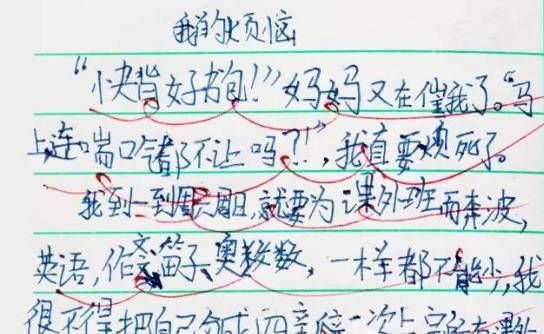 我的烦恼
“快背好书包!”妈妈又在催我了。“马
上,连喘口气都不让吗?!”,我真要烦死了。
我到一到周六周日,就要为课外班而奔波,
英语,作文,笛子,奥数,一样都不能少,我
很不得把自己分成四